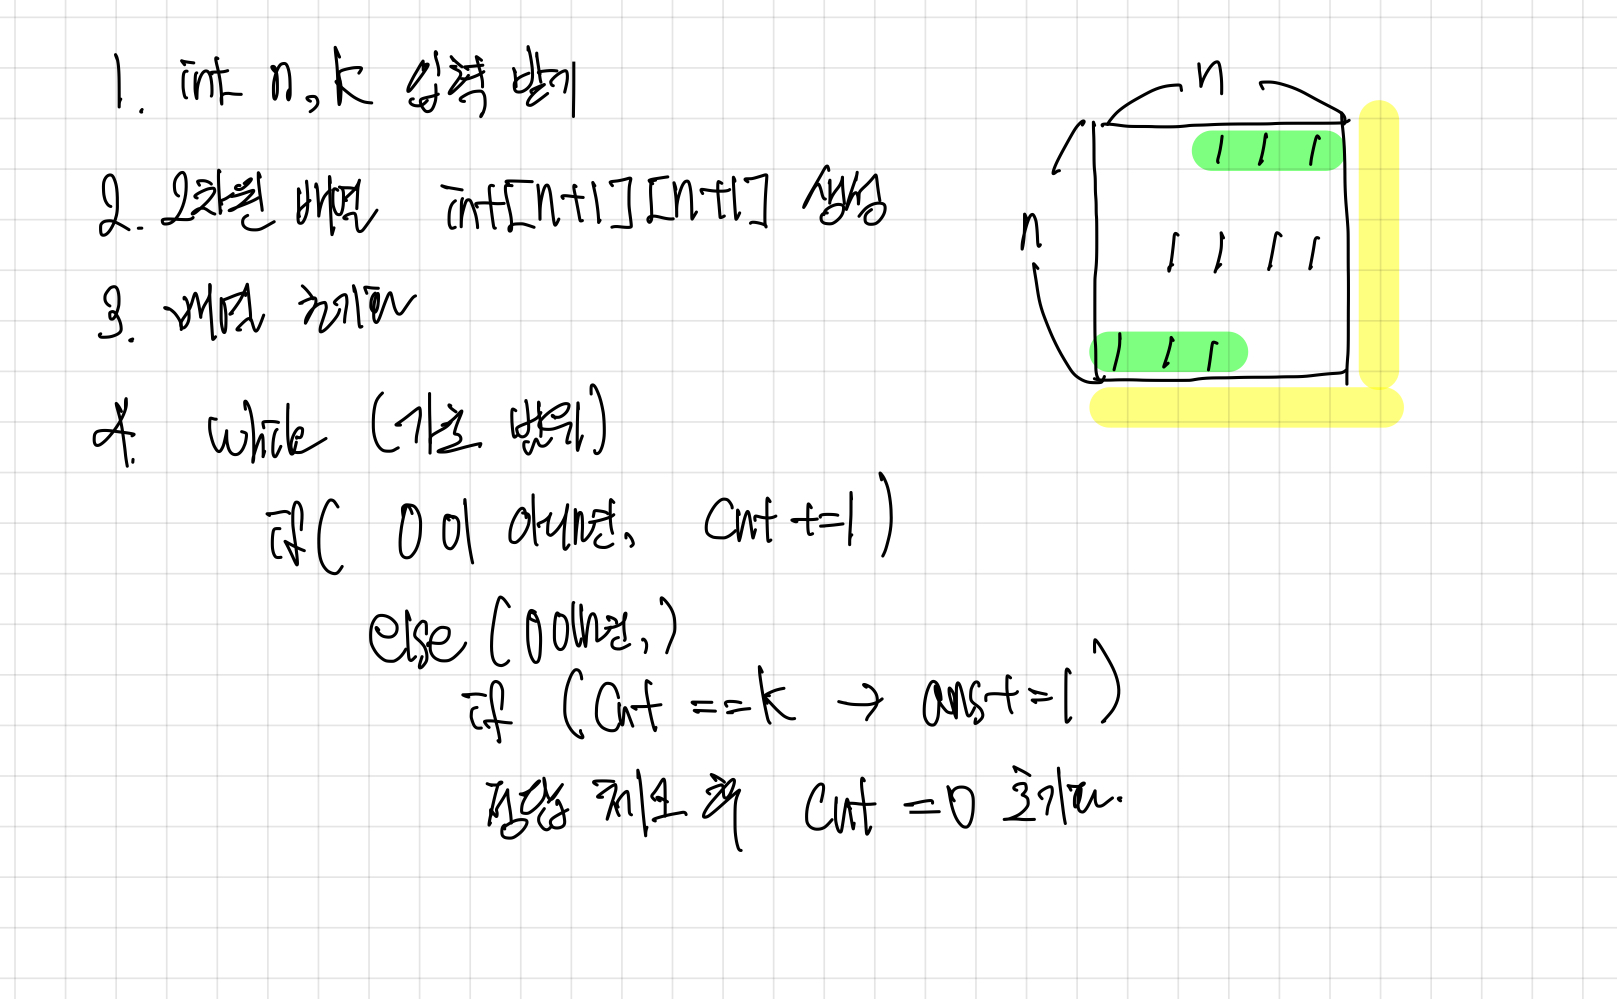 1. int n, k 입력 받기
2. 2차원 배열 int[n+1][n+1] 생성
3. 배열 초기화
4. while (가로 범위)
if( 0이 아니면, cnt +=1 )
else (0이면,)
if (cnt ==k → ans+=1 )
정답 체크 후 cnt =0 초기화.
n
n
1 1 1
1 1 1 1
1 1 1